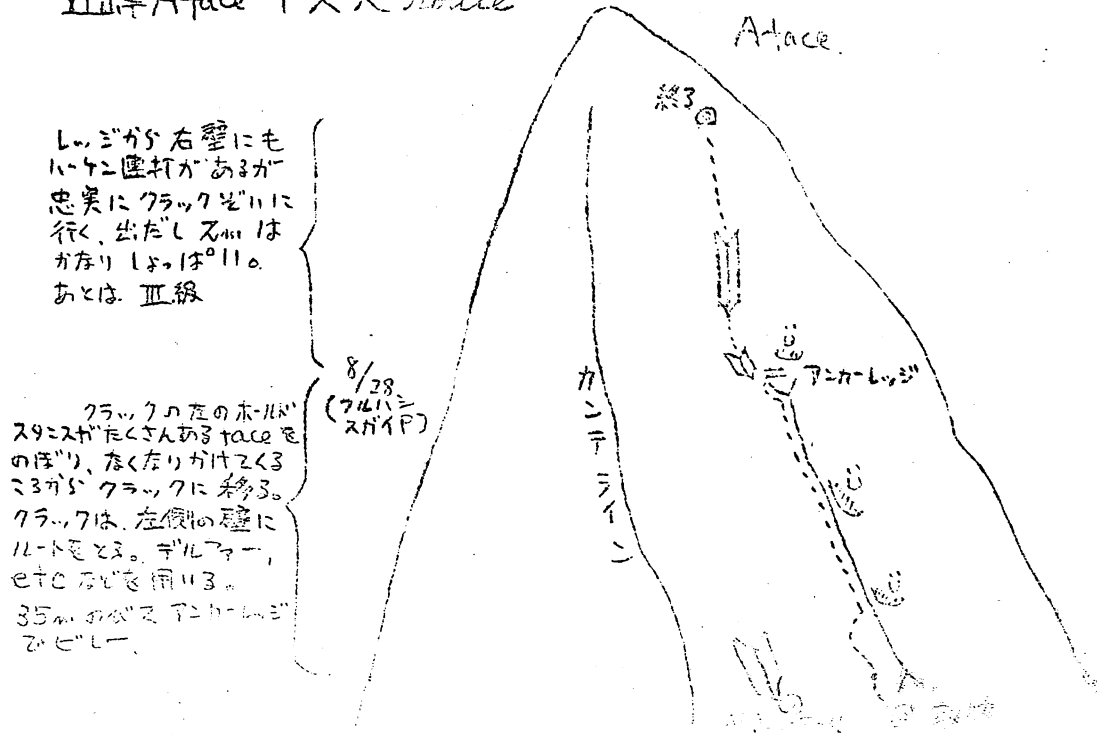 A face
A face.
終了
レッジから右壁にも
ハーケン連打があるが
忠実にクラックぞいに
行く、出だし 2m は
かなりしょっぱい。
あとは Ⅲ級
8/28
(フルハシ
スガイP)
アンカーレッジ
カンテライン
クラックの左のホールド
スタンスがたくさんある faceを
のぼり、なくなりかけてくる
ころから クラックに 移る。
クラックは、左側の壁に
ルートをとる。デルファー,
etc などを用いる。
35m のばス アンカーレッジ
でビレー.